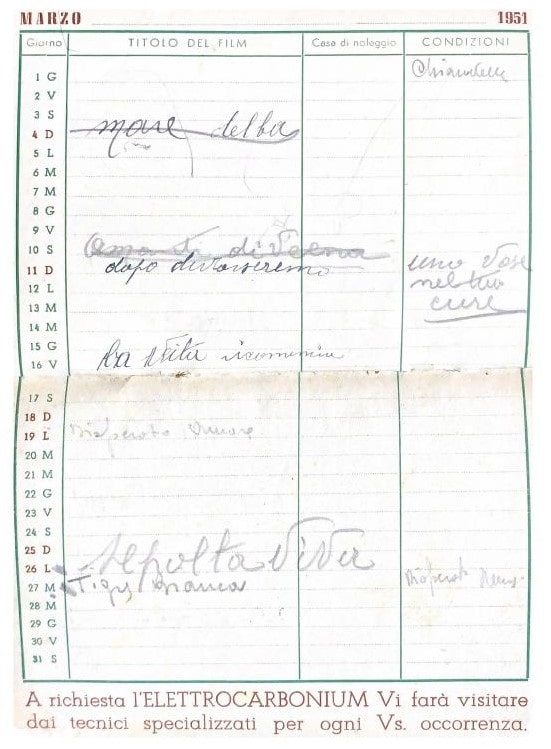 MARZO 1951
Giorno TITOLO DEL FILM Casa di noleggio CONDIZIONI
1 G
2 V
3 S
4 D mare delba
5 L
6 M
7 M
8 G
9 V
10 S
11 D dopo divorzieremo uno vose
12 L nel tuo
13 M cure
14 M
15 G
16 V La vita ricomincia
17 S
18 D
19 L Disperato Amore
20 M
21 M
22 G
23 V
24 S
25 D sepolta viva
26 L
27 M Tigre bianca Disperato
28 M
29 G
30 V
31 S
A richiesta l'ELETTROCARBONIUM Vi farà visitare
dai tecnici specializzati per ogni Vs. occorrenza.